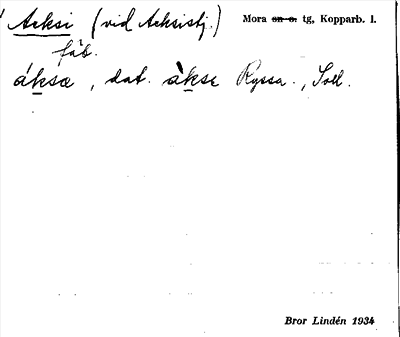 Acksi (vid Acksistj.)
Mora on o. tg, Kopparb. l.
fäb.
áksæ, dat. àksɛ Ryssa., Soll.
Bror Lindén 1934